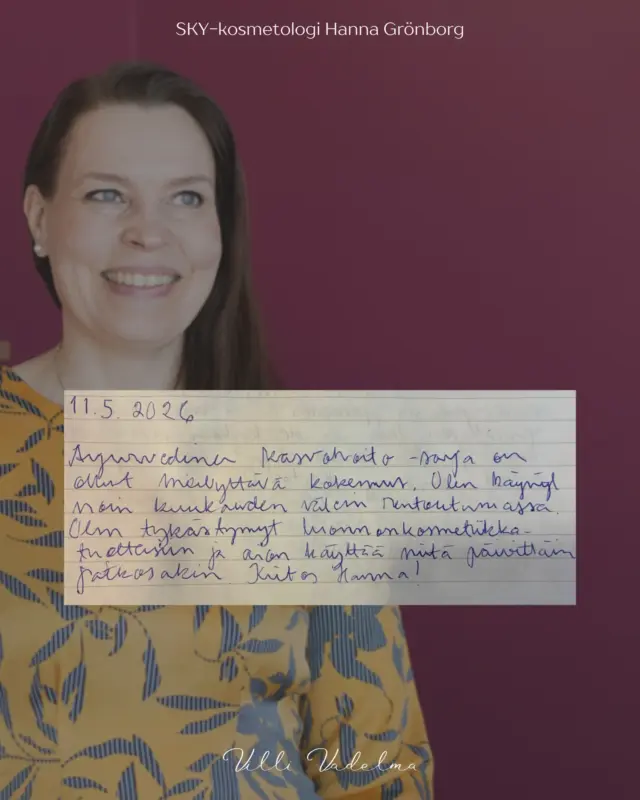 SKY-kosmetologi Hanna Grönborg
11.5.2026
Ayurvedinen kasvohoito -sarja on
ollut miellyttävä kokemus. Olen käynyt
noin kuukauden välein rentoutumassa.
Olen tykästynyt luonnonkosmetiikka-
tuotteisiin ja aion käyttää niitä päivittäin
jatkossakin. Kiitos Hanna!
Villi Vadelma